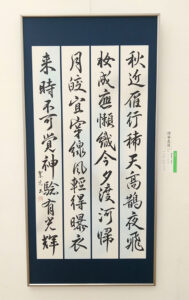 秋近雁行稀天高鵲夜飛
妝成應懶織今夕渡河歸
月皎宜穿線風輕得曝衣
来時不可覺神驗有光輝